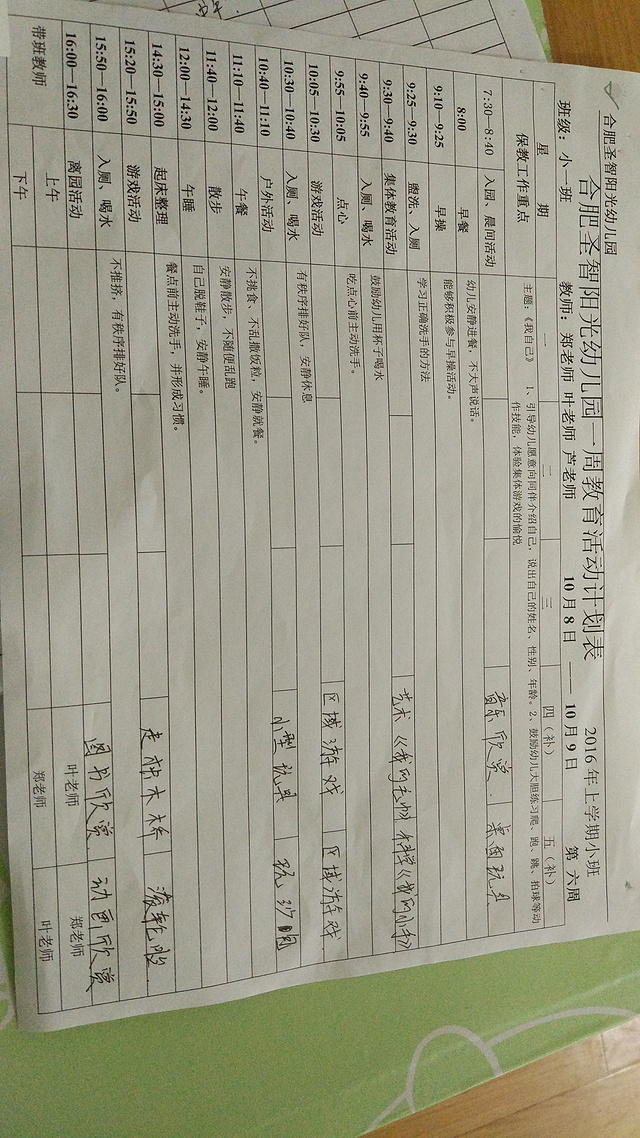 合肥圣智阳光幼儿园
合肥圣智阳光幼儿园一周教育活动计划表
2016年上学期小班
班级：小一班 教师：郑老师 叶老师 芦老师 10月8日 —— 10月9日 第 六周
星 期 一 二 三 四（补） 五（补）
保教工作重点 主题：《我自己》 1、引导幼儿愿意向同伴介绍自己，说出自己的姓名、性别、年龄。2、鼓励幼儿大胆练习爬、跑、跳、拍球等动
作技能，体验集体游戏的愉悦
7:30—8:40 入园、晨间活动 音乐欣赏 桌面玩具
8:00 早餐 幼儿安静进餐，不大声说话。
9:10—9:25 早操 能够积极参与早操活动。
9:25—9:30 盥洗、入厕 学习正确洗手的方法
9:30—9:40 集体教育活动 艺术《我的毛巾 科学《我的小手
9:40—9:55 入厕、喝水 鼓励幼儿用杯子喝水
9:55—10:05 点心 吃点心前主动洗手。
10:05—10:30 游戏活动 区域游戏 区域游戏
10:30—10:40 入厕、喝水 有秩序排好队，安静休息
10:40—11:10 户外活动 小型玩具 玩沙
11:10—11:40 午餐 不挑食、不乱撒饭粒，安静就餐。
11:40—12:00 散步 安静散步，不随便乱跑
12:00—14:30 午睡 自己脱鞋子，安静午睡。
14:30—15:00 起床整理 餐点前主动洗手，并形成习惯。
15:20—15:50 游戏活动 走独木桥 滚轮胎
15:50—16:00 入厕、喝水 不推挤，有秩序排好队。
16:00—16:30 离园活动 图书欣赏 动画欣赏
带班教师 上午 叶老师 郑老师
下午 郑老师 叶老师